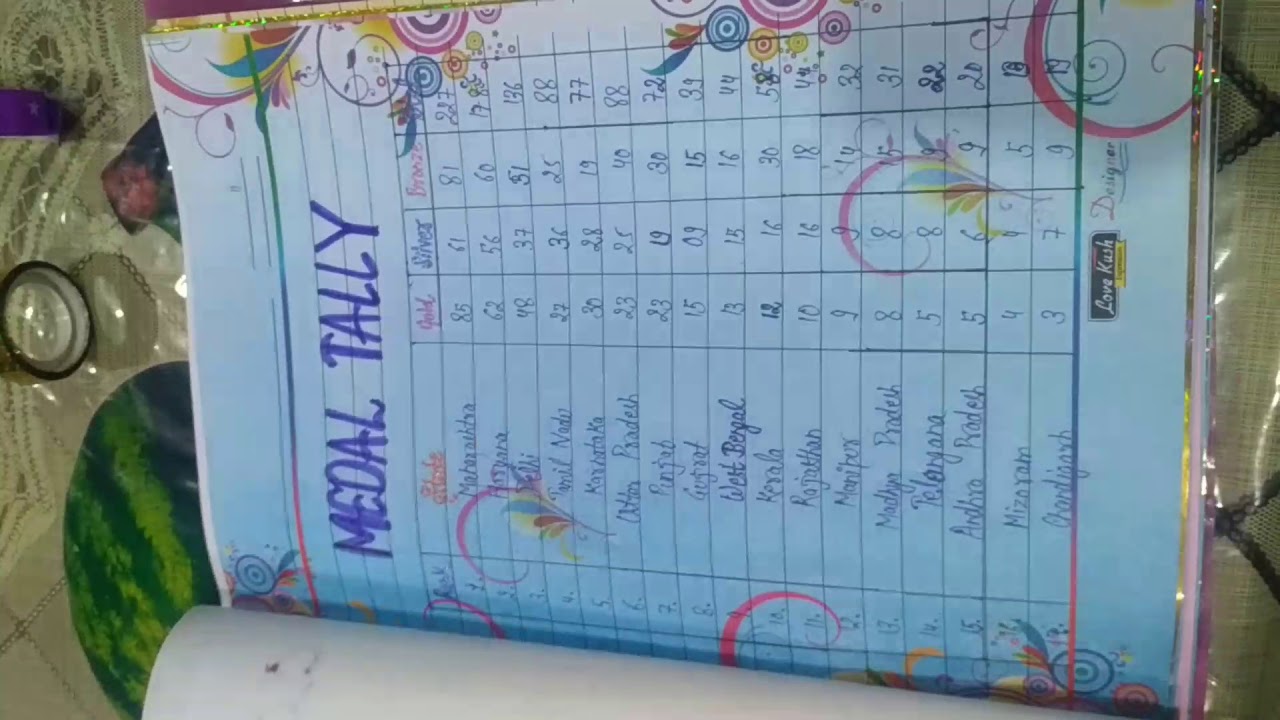 MEDAL TALLY
Rank State Gold Silver Bronze
1. Maharashtra 85 61 81 227
2. Haryana 62 56 60
3. Delhi 48 37 31 136
4. Tamil Nadu 27 36 25 88
5. Karnataka 30 28 19 77
6. Uttar Pradesh 23 25 40 88
7. Punjab 23 19 30 72
8. Gujrat 15 09 15 39
West Bengal 13 15 16 44
10. Kerala 12 16 30 58
11. Rajasthan 10 16 18 44
12. Manipur 9 9 14 32
13. Madhya Pradesh 8 8 15 31
14. Telangana 5 8 9 22
15. Andhra Pradesh 5 6 9 20
16. Mizoram 4 4 5 13
17. Chandigarh 3 7 9 19
Love Kush Designer